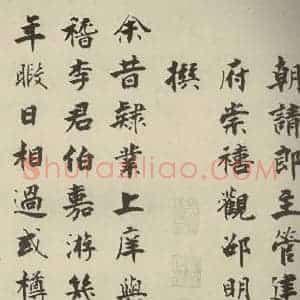 朝請郎主管建
府崇禧觀邵明
撰
余昔肄業上庠與
稽李君伯嘉游
年暇日相過或樽
shufaziliao.com